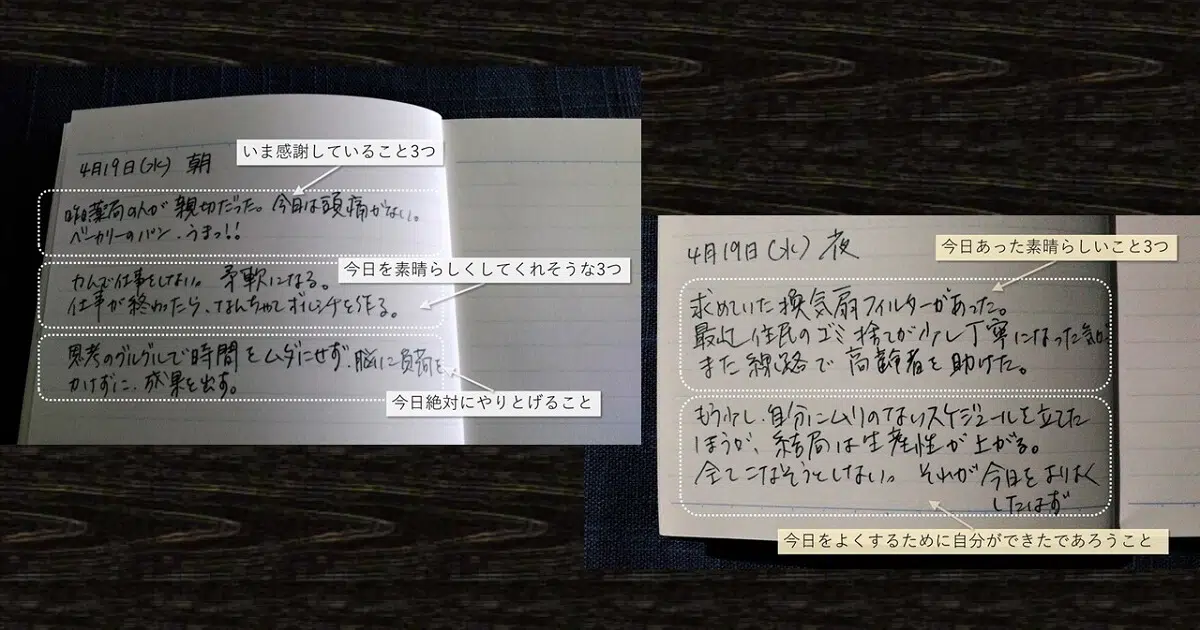 4月19日(水) 朝
いま感謝していること3つ
昨日薬局の人が親切だった。今日は頭痛がない。
ベーカリーのパン、うまっ!!
今日を素晴らしくしてくれそうな3つ
力んで仕事をしない。柔軟になる。
仕事が終わったら、なんちゃってボルシチを作る。
思考のグルグルで時間をムダにせず、脳に負荷を
かけずに、成果を出す。
今日絶対にやりとげること
4月19日(水) 夜
今日あった素晴らしいこと3つ
求めていた換気扇フィルターがあった。
最近住民のゴミ捨てが少し丁寧になった気が
また線路で高齢者を助けた。
もう少し、自分にムリのないスケジュールを立てた
ほうが、結局は生産性が上がる。
全てこなそうとしない。それが今日をよりよく
したはず
今日をよくするために自分ができたであろうこと